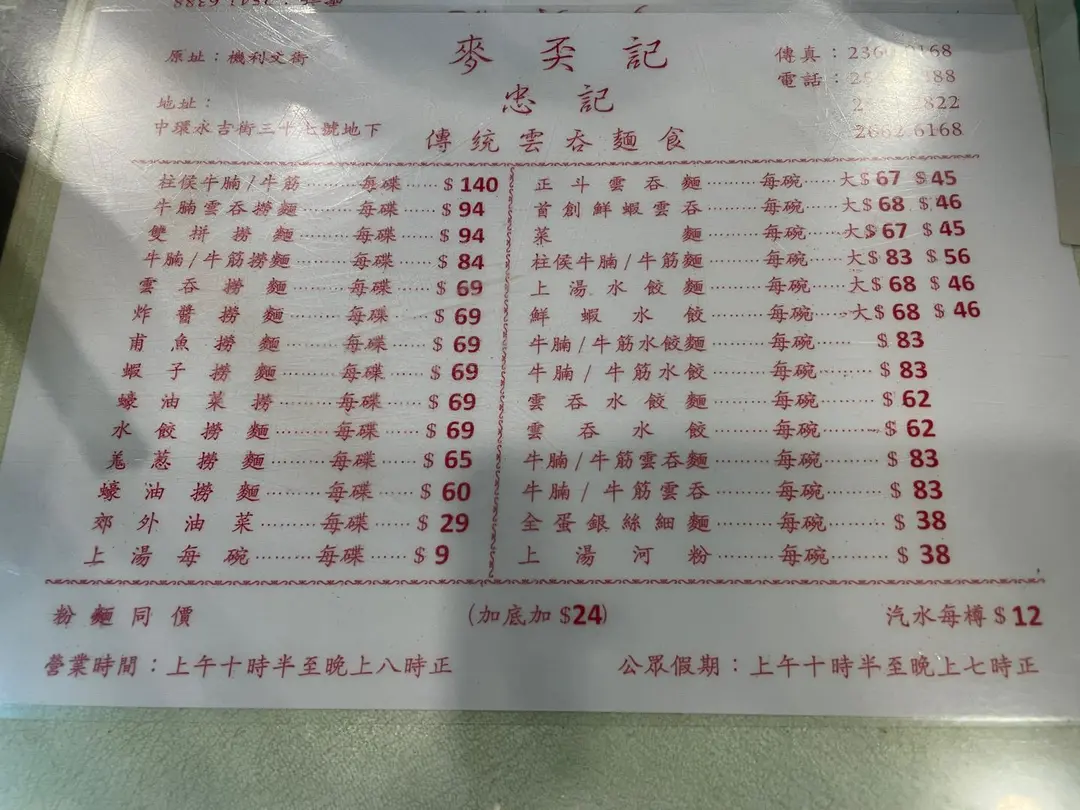 原址：機利文街
麥奀記
忠記
傳統雲吞麵食
傳真：2360 0168
電話：
2822
2662 6168
地址：
中環永吉街三十七號地下
柱侯牛腩/牛筋………每碟……$140
牛腩雲吞撈麵………每碟……$94
雙拼撈麵………每碟……$94
牛腩/牛筋撈麵………每碟……$84
雲吞撈麵………每碟……$69
炸醬撈麵………每碟……$69
甫魚撈麵………每碟……$69
蝦子撈麵………每碟……$69
蠔油菜撈………每碟……$69
水餃撈麵………每碟……$69
羗葱撈麵………每碟……$65
蠔油撈麵………每碟……$60
郊外油菜………每碟……$29
上湯每碗………每碟……$9
正斗雲吞麵………每碗……大$67 $45
首創鮮蝦雲吞………每碗……大$68 $46
菜麵………每碗……大$67 $45
柱侯牛腩/牛筋麵………每碗……大$83 $56
上湯水餃麵………每碗……大$68 $46
鮮蝦水餃………每碗……大$68 $46
牛腩/牛筋水餃麵………每碗……$83
牛腩/牛筋水餃………每碗……$83
雲吞水餃麵………每碗……$62
雲吞水餃………每碗……$62
牛腩/牛筋雲吞麵………每碗……$83
牛腩/牛筋雲吞………每碗……$83
全蛋銀絲細麵………每碗……$38
上湯河粉………每碗……$38
粉麵同價
(加底加$24)
汽水每樽$12
營業時間：上午十時半至晚上八時正
公眾假期：上午十時半至晚上七時正